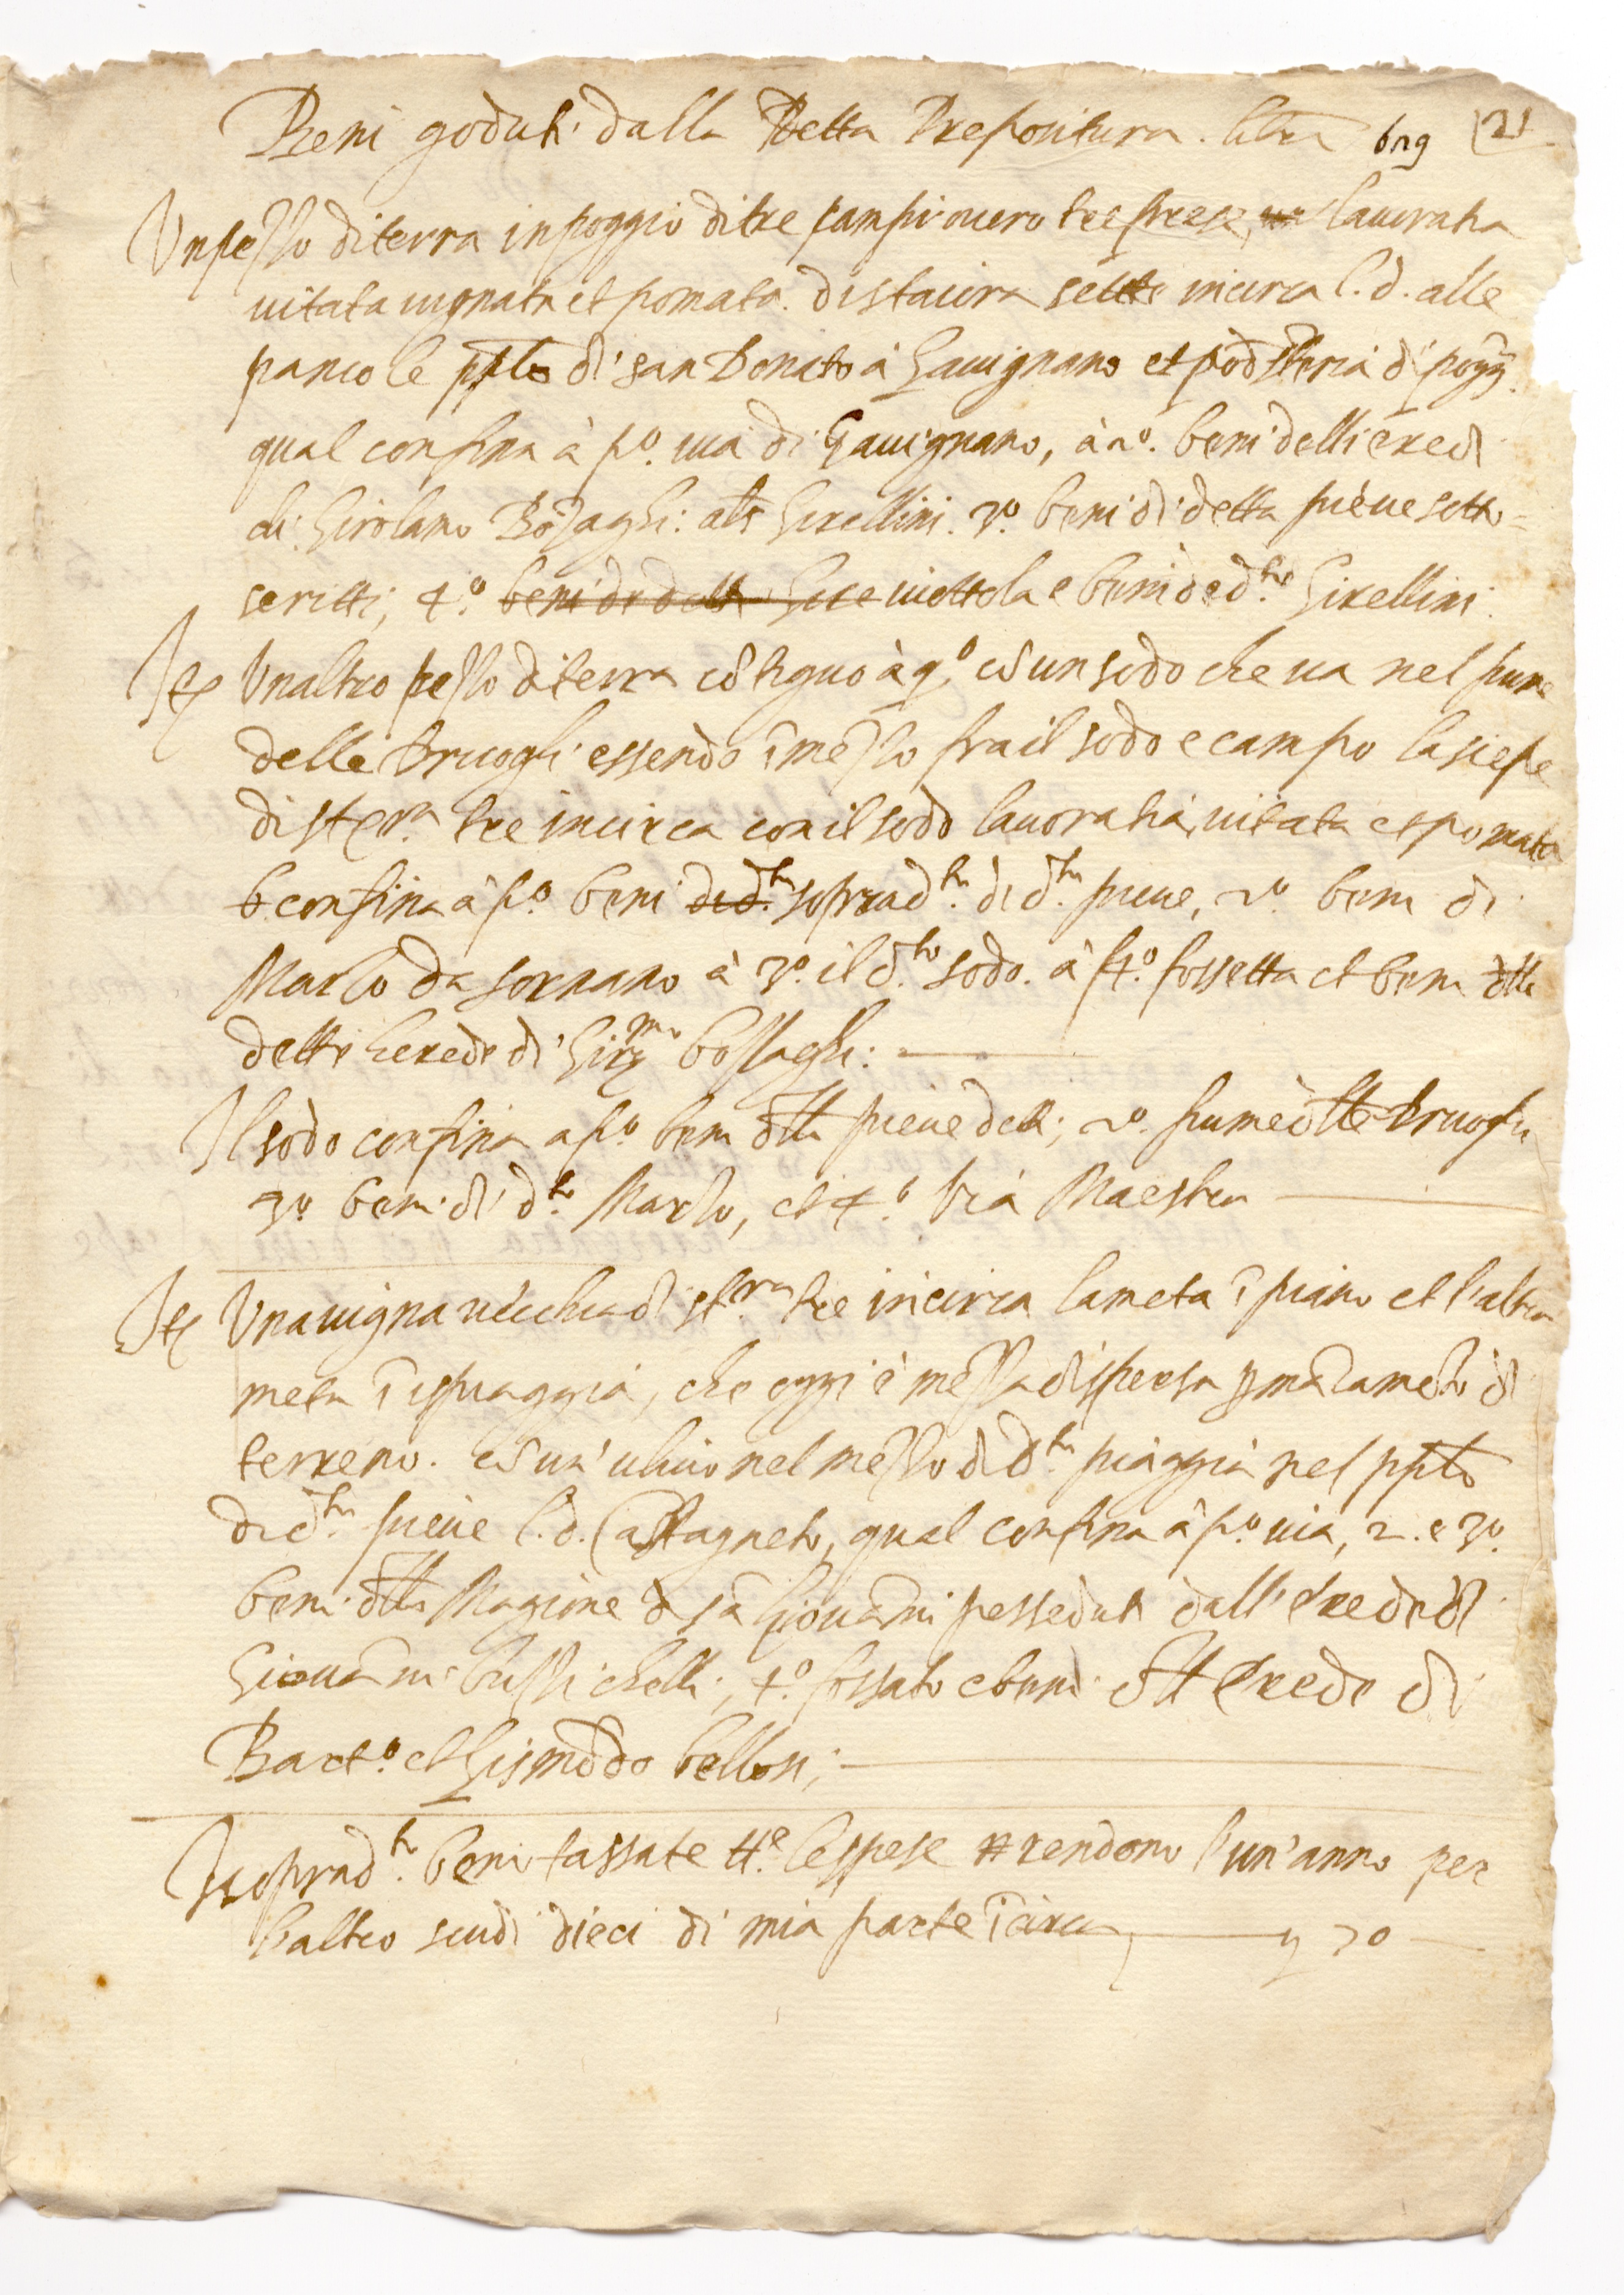 Beni goduti dalla Detta Prepositura. 629 21
Un pezzo di terra in poggio di tre campi overo tre prese, lavoratia
vitata vignata et pomata. di staiora sette incirca l. d. alle
pancole pplo di san Donato à Gavignano et podsteria di pogg.
qual confina à po. via di Gavignano, à 2o. beni delli eredi
di Girolamo Bozaghi: als Girellini. 3o. beni di detta pieve sotto=
scritti; 4o. beni di detti viottola e beni de dti. Girellini.
Ite Unaltro pezzo di terra cõtiguo à qo cõ un sodo che va nel fiume
delle Druogli essendo ĩ mezzo fra il sodo e campo la siepe
di stra. tre incirca con il sodo lavoratia, vitata et pomata
confina à po. beni di dta. sopradta. di dta. pieve, 2o. beni di
Marco da sornano à 3o. il dto. sodo. à 4o. fossetta et beni
dette herede di Girmo Bozzaghi: —
Il sodo confina a po. beni dlla pieve detti; 2o. fiume dlle Druogli
3o. beni di dto. Marco, et 4o. via Maestra —
Ite Una vigna vecchia di stra. tre incirca la metà ĩ piano et l'altra
metà ĩ ispiaggia, che oggi è mezza dispersa p mãcamẽto di
terreno. cõ un' ulivo nel mezzo di dta. piaggia nel pplo
di dta. pieve l. d. Castagneto, qual confina à po. via, 2. e 3o.
beni dlla Magione di sã Giovãni posseduti dall' erede di
Giovãni 4o. fossato e beni dll erede di
Barto. et Gismõdo bellosi; —
I sopradti. beni tassate tte. le spese rendono l'un' anno per
l'altro scudi dieci di mia parte ĩcirca, — 70 —